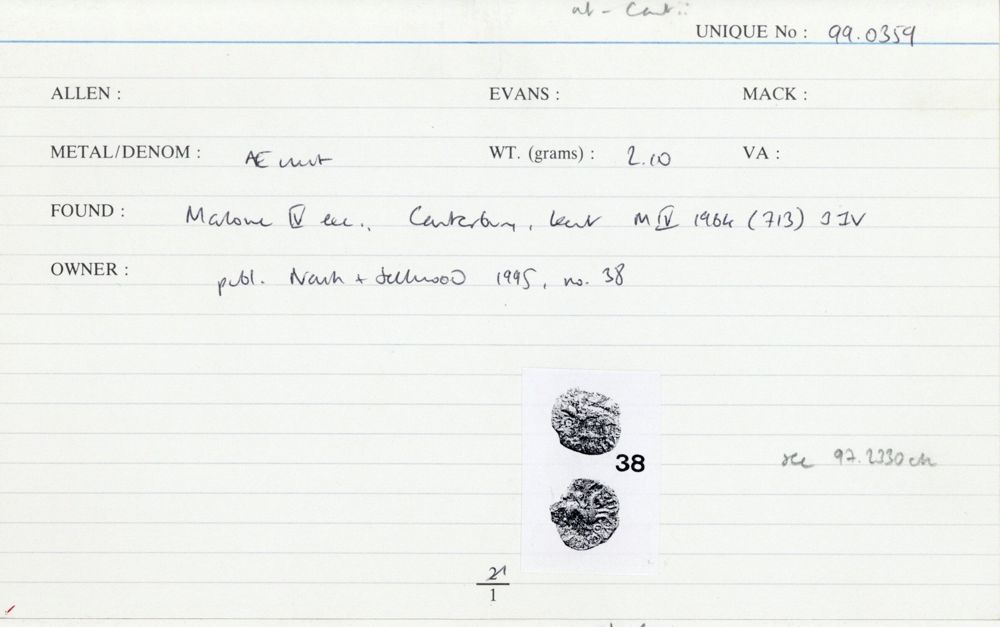 UNIQUE No : 99.0359
ALLEN :
EVANS :
MACK :
METAL/DENOM : Æ unit
WT. (grams) : 2.10
VA :
FOUND : Marlowe IV exc., Canterbury, Kent M IV 1984 (713)
OWNER :
publ. Nash + Sellwood 1995, no. 38
38
see 97.2330
21
1